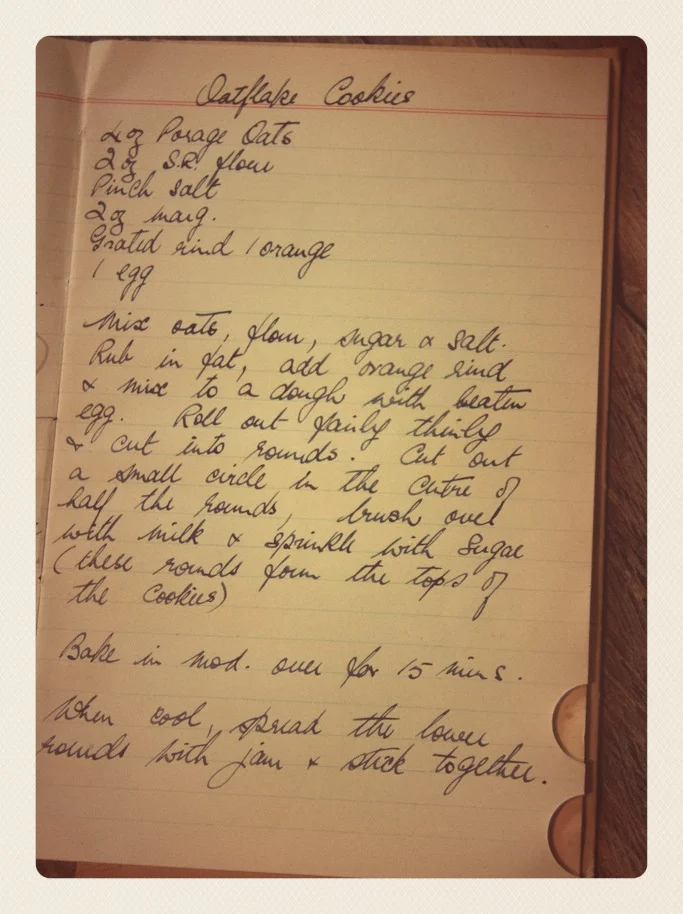 Oatflake Cookies
4oz Porage Oats
2oz S.R. flour
Pinch salt
2oz marg.
Grated rind 1 orange
1 egg
Mix oats, flour, sugar & salt.
Rub in fat, add orange rind
& mix to a dough with beaten
egg. Roll out fairly thinly
& cut into rounds. Cut out
a small circle in the centre of
half the rounds, brush over
with milk & sprinkle with sugar
(these rounds form the tops of
the cookies)
Bake in mod. oven for 15 mins.
When cool, spread the lower
rounds with jam & stick together.